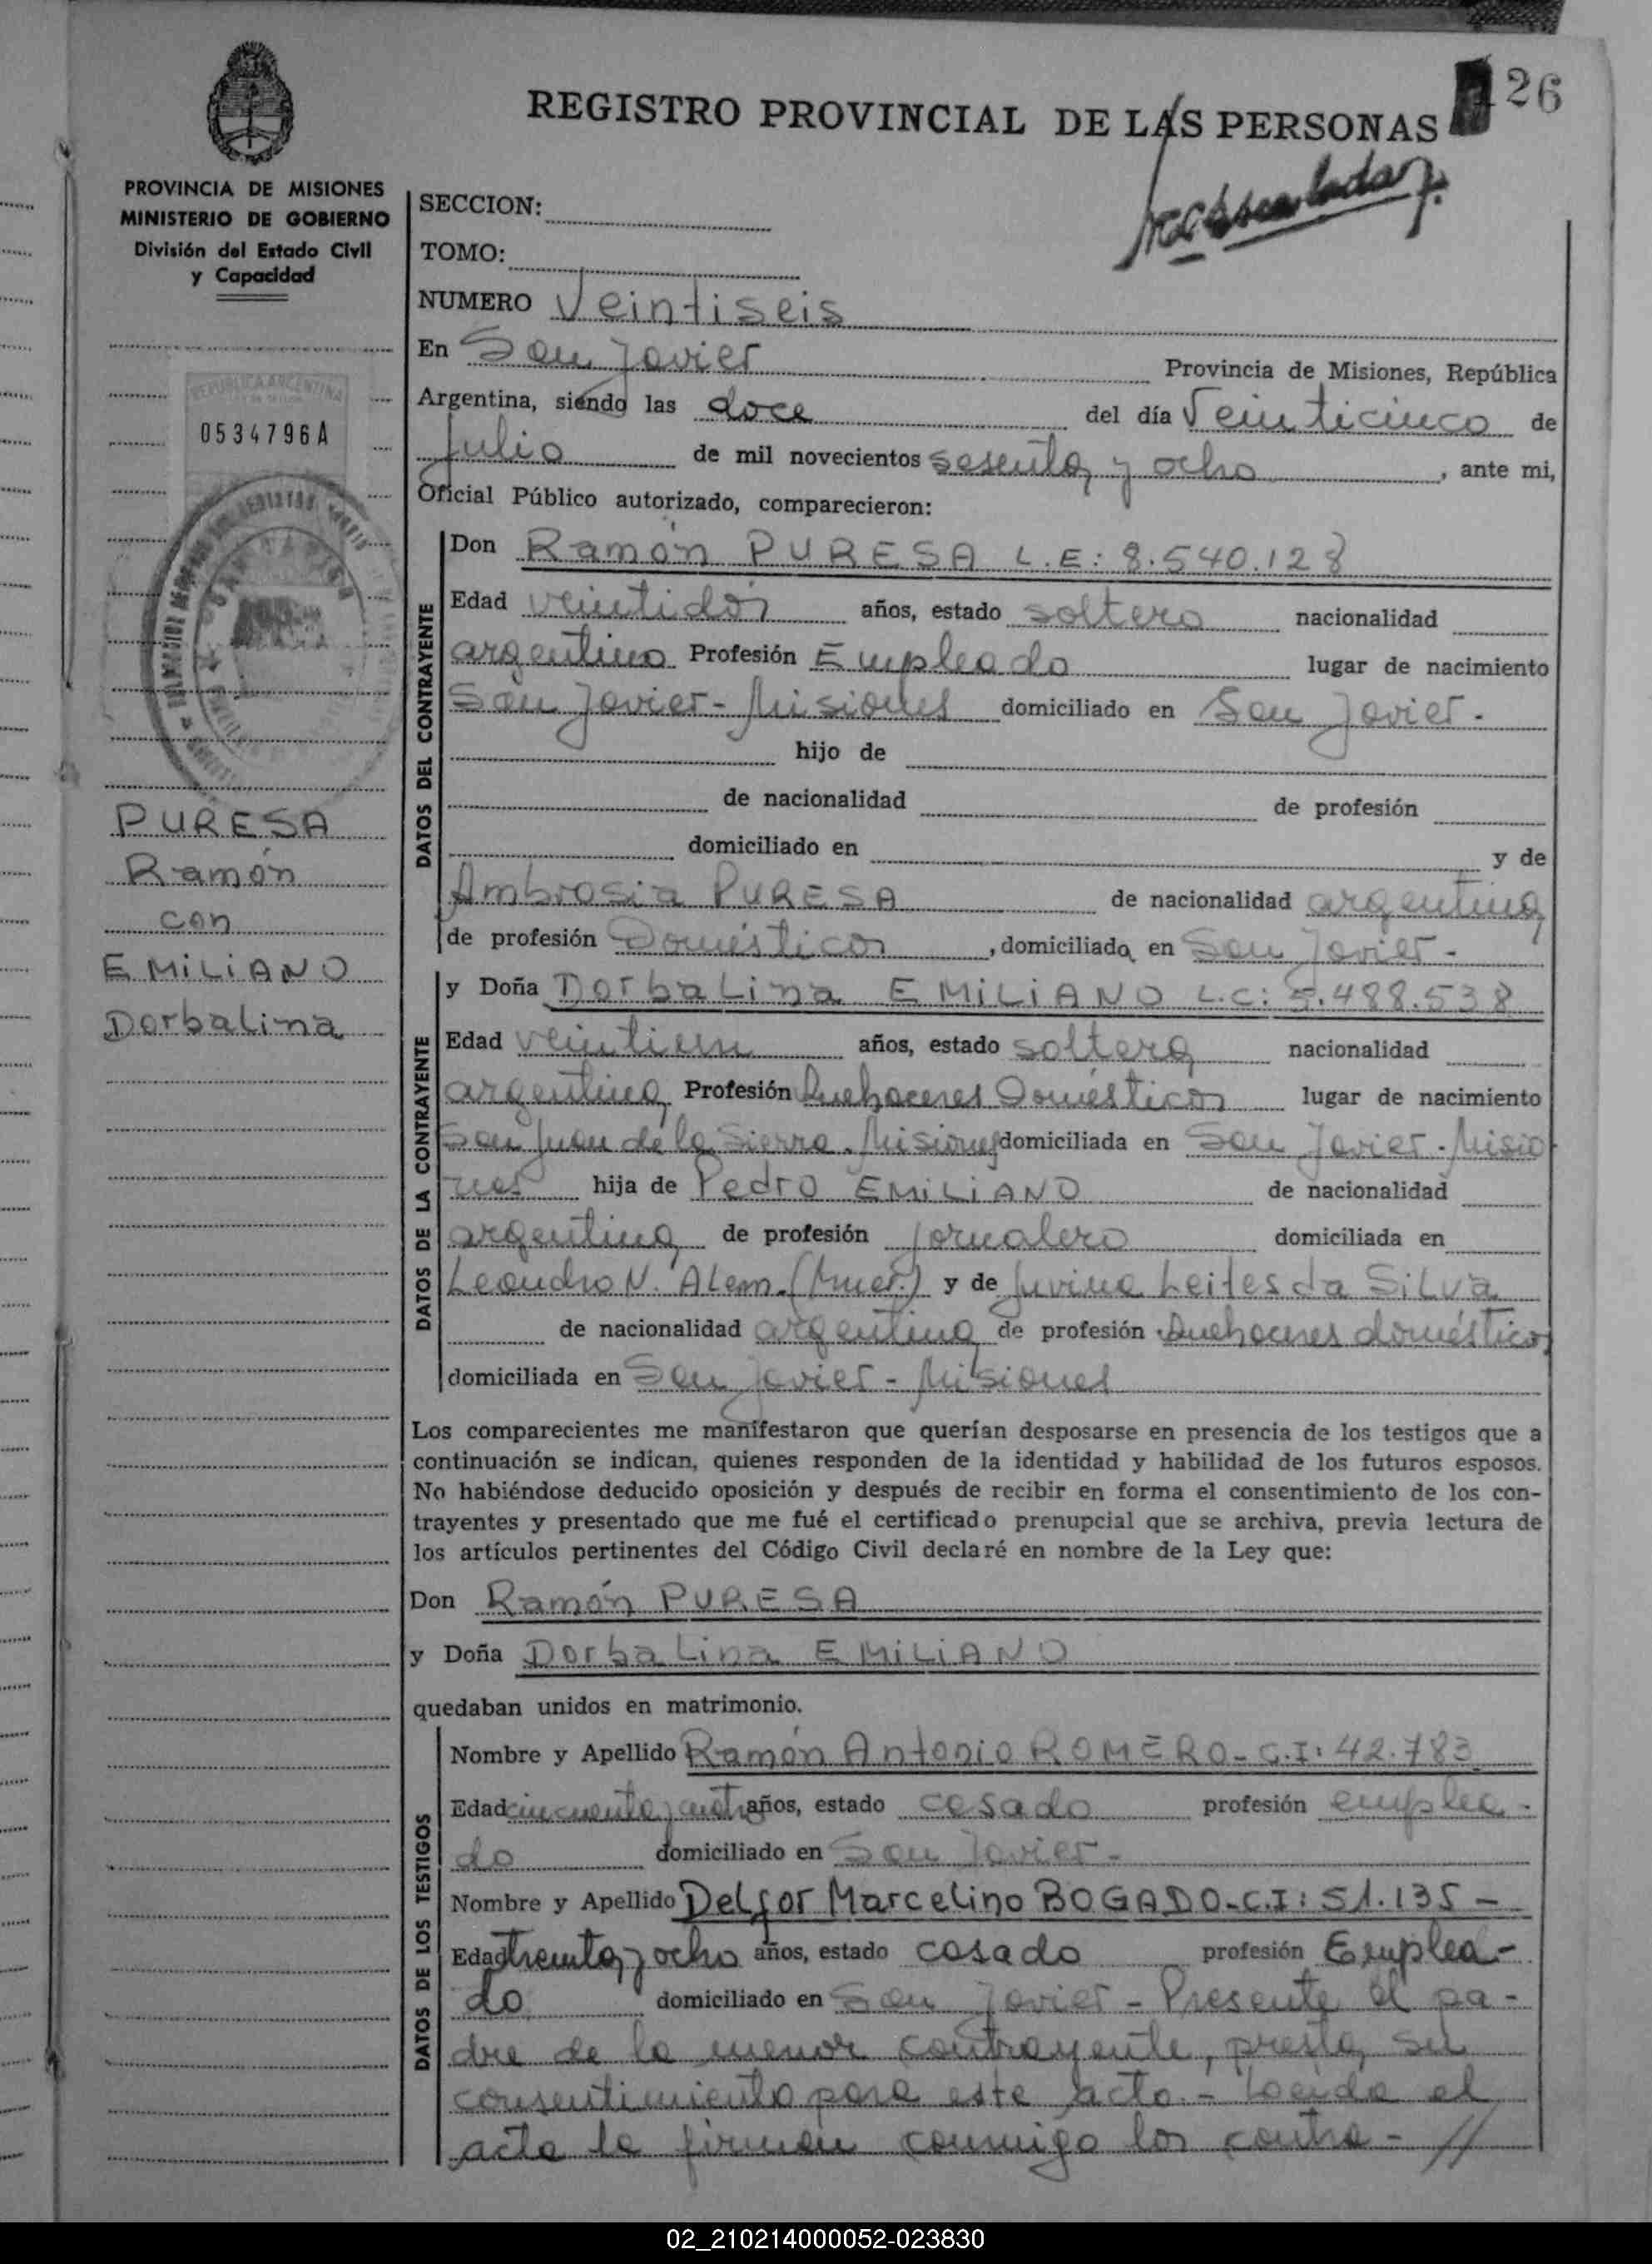 REGISTRO PROVINCIAL DE LAS PERSONAS
26
PROVINCIA DE MISIONES
MINISTERIO DE GOBIERNO
División del Estado Civil
y Capacidad
REPUBLICA ARGENTINA
0534796A
PURESA
Ramón
con
EMILIANO
Dorbalina
SECCION:
TOMO:
NUMERO Veintiseis
En San Javier Provincia de Misiones, República
Argentina, siendo las doce del día Veinticinco de
Julio de mil novecientos sesenta y ocho, ante mi,
Oficial Público autorizado, comparecieron:
DATOS DEL CONTRAYENTE
Don Ramón PURESA L.E: 8.540.128
Edad veintidós años, estado soltero nacionalidad
argentino Profesión Empleado lugar de nacimiento
San Javier - Misiones domiciliado en San Javier.
hijo de
de nacionalidad de profesión
domiciliado en y de
Ambrosia PURESA de nacionalidad argentina
de profesión Domésticos, domiciliada en San Javier -
DATOS DE LA CONTRAYENTE
y Doña Dorbalina EMILIANO L.C: 5.488.538
Edad veintiun años, estado soltera nacionalidad
argentina Profesión Quehaceres Domésticos lugar de nacimiento
San Juan de la Sierra. Misiones domiciliada en San Javier - Misio
nes hija de Pedro EMILIANO de nacionalidad
argentina de profesión jornalero domiciliada en
Leandro N. Alem. y de Juvina Leites da Silva
de nacionalidad argentina de profesión Quehaceres domésticos
domiciliada en San Javier - Misiones
Los comparecientes me manifestaron que querían desposarse en presencia de los testigos que a
continuación se indican, quienes responden de la identidad y habilidad de los futuros esposos.
No habiéndose deducido oposición y después de recibir en forma el consentimiento de los con-
trayentes y presentado que me fué el certificado prenupcial que se archiva, previa lectura de
los artículos pertinentes del Código Civil declaré en nombre de la Ley que:
Don Ramón PURESA
y Doña Dorbalina EMILIANO
quedaban unidos en matrimonio.
DATOS DE LOS TESTIGOS
Nombre y Apellido Ramón Antonio ROMERO - C.I: 42.783
Edad cincuenta y años, estado casado profesión emplea-
do domiciliado en San Javier -
Nombre y Apellido Delfor Marcelino BOGADO - C.I: 51.135 -
Edad treinta y ocho años, estado casado profesión Emplea-
do domiciliado en San Javier - Presente el pa-
dre de la menor contrayente, presta su
consentimiento para este acto. - Leída el
acta la firman conmigo los contra- //
02_210214000052-023830